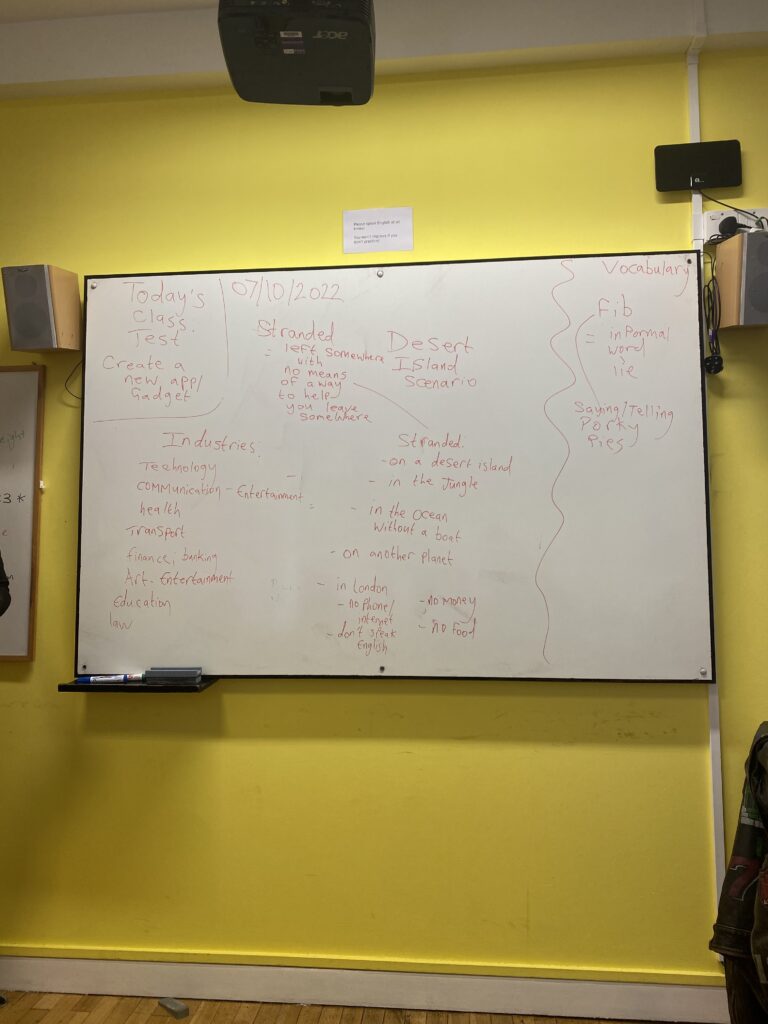 acer
Please speak English at all
times!
You won't improve if you
don't practice!
Today's
Class
Test
Create a
new app/
Gadget
07/10/2022
Stranded
= left somewhere
with
no means
of a way
to help
you leave
somewhere
Desert
Island
Scenario
Industries:
Technology
Communication - Entertainment
health
Transport
finance; banking
Art - Entertainment
Education
law
Stranded:
- on a desert island
- in the Jungle
- in the ocean
without a boat
- on another planet
- in London
- no phone/
internet
- don't speak
English
- no money
- no food
Vocabulary
Fib
= informal
word
lie
Saying/Telling
Porky
Pies